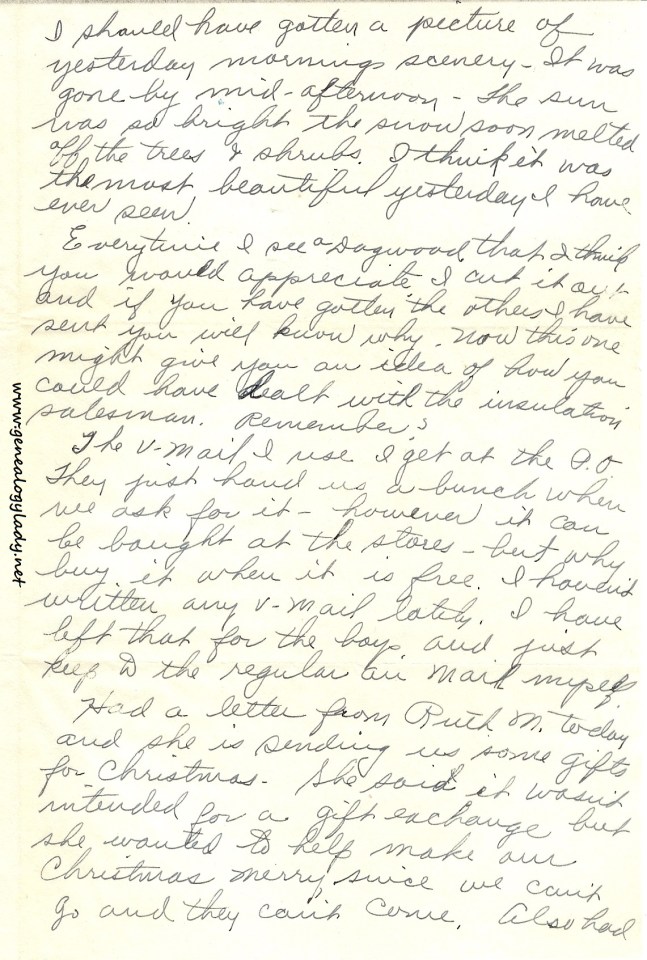 I should have gotten a picture of
yesterday mornings scenery - It was
gone by mid-afternoon - The sun
was so bright the snow soon melted
off the trees & shrubs. I think it was
the most beautiful yesterday I have
ever seen.
Everytime I see a Dagwood that I think
you would appreciate I cut it out
and if you have gotten the others I have
sent you will know why. Now this one
might give you an idea of how you
could have dealt with the insulation
salesman. Remember?
The V-Mail I use I get at the P.O
They just hand us a bunch when
we ask for it - however it can
be bought at the stores - but why
buy it when it is free. I haven't
written any V-Mail lately. I have
left that for the boys and just
keep to the regular air mail myself
Had a letter from Ruth M. today
and she is sending us some gifts
for Christmas. She said it wasn't
intended for a gift exchange but
she wanted to help make our
Christmas merry since we can't
go and they can't come. Also had
www.genealogylady.net